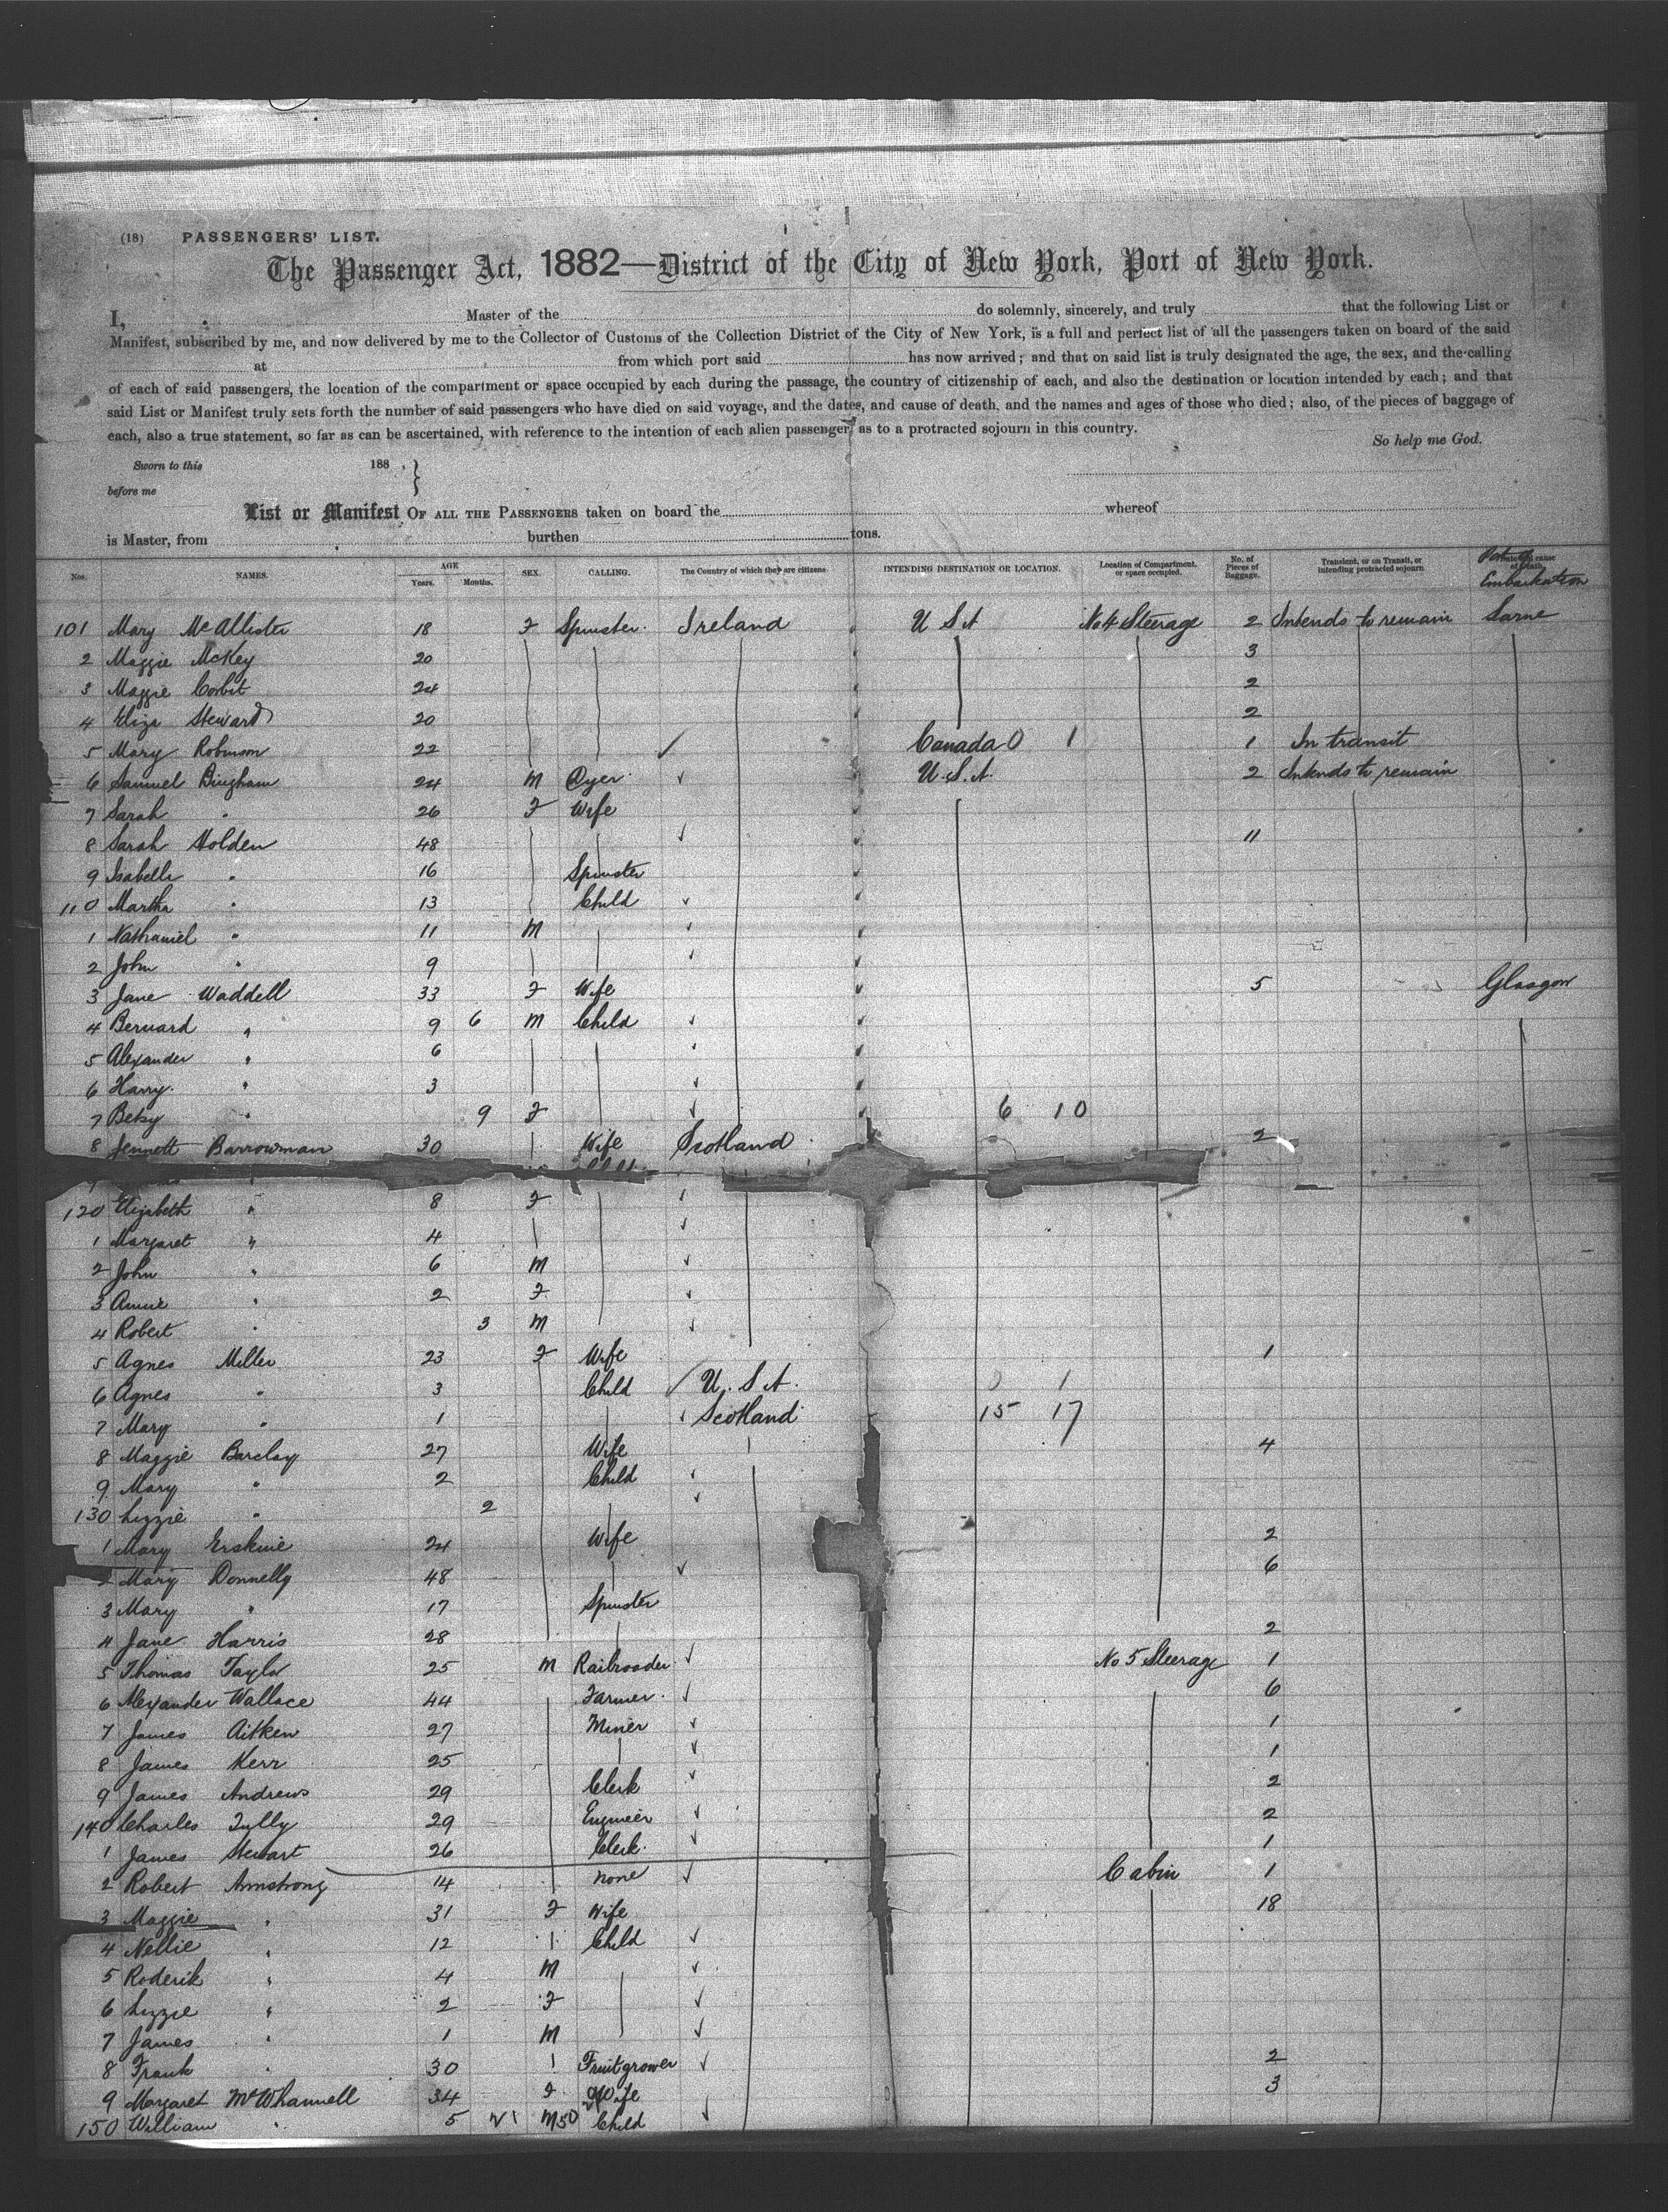 (18) PASSENGERS' LIST.
The Passenger Act, 1882—District of the City of New York, Port of New York.
I, Master of the do solemnly, sincerely, and truly that the following List or
Manifest, subscribed by me, and now delivered by me to the Collector of Customs of the Collection District of the City of New York, is a full and perfect list of all the passengers taken on board of the said
at from which port said has now arrived; and that on said list is truly designated the age, the sex, and the calling
of each of said passengers, the location of the compartment or space occupied by each during the passage, the country of citizenship of each, and also the destination or location intended by each; and that
said List or Manifest truly sets forth the number of said passengers who have died on said voyage, and the dates, and cause of death, and the names and ages of those who died; also, of the pieces of baggage of
each, also a true statement, so far as can be ascertained, with reference to the intention of each alien passenger, as to a protracted sojourn in this country.
So help me God.
Sworn to this 188 ,
before me
List or Manifest OF ALL THE PASSENGERS taken on board the whereof
is Master, from burthen tons.
Nos. NAMES. AGE Years. Months. SEX. CALLING. The Country of which they are citizens INTENDING DESTINATION OR LOCATION. Location of Compartment, or space occupied. No. of Pieces of Baggage. Transient, or on Transit, or intending protracted sojourn Port of Embarkation
101 Mary McAllister 18 F Spinster Ireland U S A No 4 Steerage 2 Intends to remain Larne
2 Maggie McKey 20 3
3 Maggie Corbit 24 2
4 Eliza Steward 20 2
5 Mary Robinson 22 Canada 0 1 1 In transit
6 Samuel Bingham 24 M Dyer U.S.A. 2 Intends to remain
7 Sarah " 26 F Wife
8 Sarah Holden 48 11
9 Isabella " 16 Spinster
110 Martha " 13 Child
1 Nathaniel " 11 M
2 John " 9
3 Jane Waddell 33 F Wife 5 Glasgow
4 Bernard " 9 6 M Child
5 Alexander " 6
6 Harry " 3
7 Betsy " 9 F 6 10
8 Jennett Barrowman 30 Wife Scotland 2
120 Elizabeth " 8 F
1 Margaret " 4
2 John " 6 M
3 Annie " 2 F
4 Robert " 3 M
5 Agnes Miller 23 F Wife 1
6 Agnes " 3 Child U.S.A. 0 1
7 Mary " 1 Scotland 15 17
8 Maggie Barclay 27 Wife 4
9 Mary " 2 Child
130 Lizzie " 2
1 Mary Erskine 24 Wife 2
2 Mary Donnelly 48 6
3 Mary " 17 Spinster
4 Jane Harris 28 2
5 Thomas Taylor 25 M Railroader No 5 Steerage 1
6 Alexander Wallace 44 Farmer 6
7 James Aitken 27 Miner 1
8 James Kerr 25 1
9 James Andrews 29 Clerk 2
140 Charles Tully 29 Engineer 2
1 James Stewart 26 Clerk 1
2 Robert Armstrong 14 none Cabin 1
3 Maggie " 31 F Wife 18
4 Nellie " 12 Child
5 Roderik " 4 M
6 Lizzie " 2 F
7 James " 1 M
8 Frank " 30 Fruitgrower 2
9 Margaret McWhannell 34 F Wife 3
150 William " 5 M 50 Child